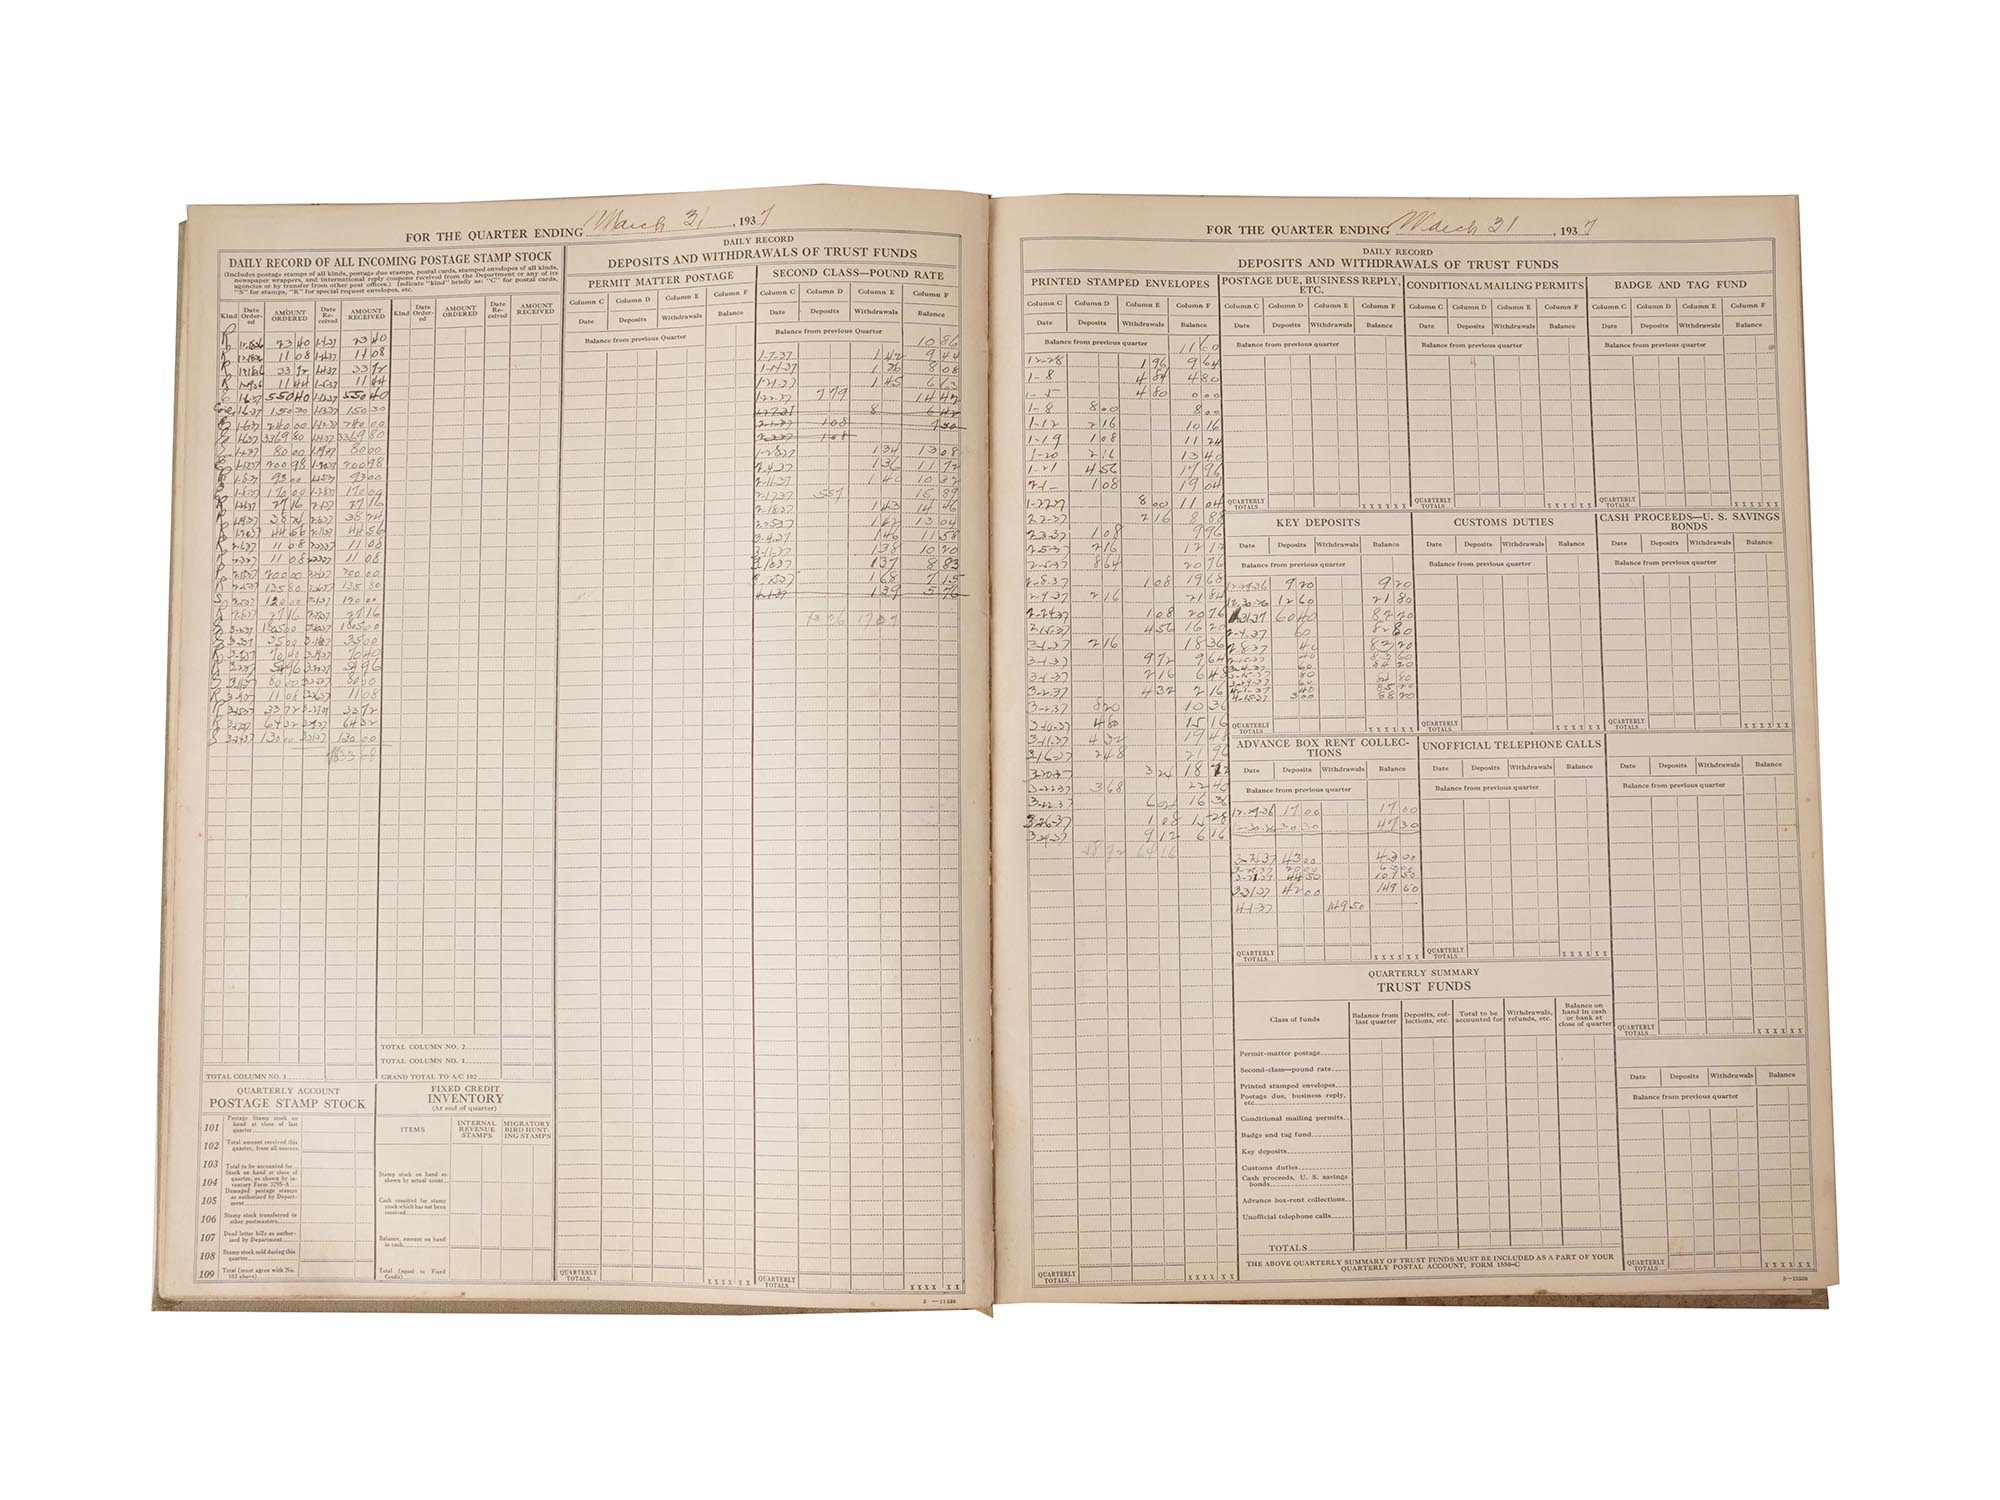 FOR THE QUARTER ENDING March 31, 1937
DAILY RECORD OF ALL INCOMING POSTAGE STAMP STOCK
(Includes postage stamps of all kinds, postage due stamps, postal cards, stamped envelopes of all kinds,
newspaper wrappers, and international reply coupons received from the Department or any of its
agencies or by transfer from other post offices.) Indicate "kind" briefly as: "C" for postal cards,
"S" for stamps, "R" for special request envelopes, etc.
Kind Date Order-ed AMOUNT ORDERED Date Re-ceived AMOUNT RECEIVED Kind Date Order-ed AMOUNT ORDERED Date Re-ceived AMOUNT RECEIVED
R 23 40 23 40
R 11 08 11 08
R 33 72 33 72
R 11 44 11 44
550 40 550 40
150 30 150 30
240 00 240 00
3369 80 3369 80
80 00 80 00
200 98 200 98
93 00 93 00
170 00 170 00
R 27 16 27 16
R 38 24 38 24
R 44 56 44 56
R 11 08 11 08
R 11 08 11 08
200 00 200 00
R 135 80 135 80
S 120 00 120 00
R 27 16 27 16
35 00 35 00
R 70 40 70 40
R 54 96 54 96
S 80 00 80 00
R 11 08 11 08
R 33 72 33 72
R 64 32 64 32
S 130 00 130 00
TOTAL COLUMN NO. 2
TOTAL COLUMN NO. 1
TOTAL COLUMN NO. 1 GRAND TOTAL TO A/C 102
QUARTERLY ACCOUNT
POSTAGE STAMP STOCK
101 Postage Stamp stock on hand at close of last quarter
102 Total amount received this quarter, from all sources
103 Total to be accounted for
104 Stock on hand at close of quarter, as shown by inventory Form 3295-A
105 Damaged postage stamps as authorized by Department
106 Stamp stock transferred to other postmasters
107 Dead letter bills as authorized by Department
108 Stamp stock sold during this quarter
109 Total (must agree with No. 103 above)
FIXED CREDIT
INVENTORY
(At end of quarter)
ITEMS INTERNAL REVENUE STAMPS MIGRATORY BIRD HUNTING STAMPS
Stamp stock on hand as shown by actual count
Cash remitted for stamp stock which has not been received
Balance, amount on hand in cash
Total (equal to Fixed Credit)
DAILY RECORD
DEPOSITS AND WITHDRAWALS OF TRUST FUNDS
PERMIT MATTER POSTAGE
Column C Column D Column E Column F
Date Deposits Withdrawals Balance
Balance from previous Quarter
QUARTERLY TOTALS X X X X X X
SECOND CLASS—POUND RATE
Column C Column D Column E Column F
Date Deposits Withdrawals Balance
Balance from previous Quarter
10 86
1-7-37 1 42 9 44
1-14-37 1 36 8 08
1-21-37 1 45 6 63
1-22-37 7 79 14 42
1 08
1 08
1-28-37 1 34 13 08
2-4-37 1 36 11 72
2-11-37 1 40 10 32
2-17-37 5 57 15 89
2-18-37 1 43 14 46
2-25-37 1 42 13 04
3-4-37 1 46 11 58
3-11-37 1 38 10 20
3-18-37 1 37 8 83
1 68 7 15
4-1-37 1 39 5 76
QUARTERLY TOTALS X X X X X X
5—11530
FOR THE QUARTER ENDING March 31, 1937
DAILY RECORD
DEPOSITS AND WITHDRAWALS OF TRUST FUNDS
PRINTED STAMPED ENVELOPES
Column C Column D Column E Column F
Date Deposits Withdrawals Balance
Balance from previous quarter
11 60
12-28 1 96 9 64
1-8 4 84 4 80
4 80 0 00
1-8 8 00 8 00
1-12 2 16 10 16
1-19 1 08 11 24
1-20 2 16 13 40
1-21 4 56 17 96
2-1- 1 08 19 04
1-22-37 8 00 11 04
2-2-37 2 16 8 88
2-3-37 1 08 9 96
2-5-37 2 16 12 12
2-5-37 8 64 20 76
2-8-37 1 08 19 68
2-9-37 2 16 21 84
2-24-37 1 08 20 76
4 56 16 20
3-1-37 2 16 18 36
3-1-37 9 72 8 64
3-1-37 2 16 6 48
3-2-37 4 32 2 16
3-2-37 8 20 10 36
3-10-37 4 80 15 16
3-11-37 4 32 19 48
3-16-37 2 48 21 96
3 24 18 72
3-22-37 3 68 22 40
3-22-37 6 04 16 36
3-26-37 1 08 15 28
3-29-37 9 12 6 16
QUARTERLY TOTALS X X X X X X
POSTAGE DUE, BUSINESS REPLY, ETC.
Column C Column D Column E Column F
Date Deposits Withdrawals Balance
Balance from previous quarter
QUARTERLY TOTALS X X X X X X
CONDITIONAL MAILING PERMITS
Column C Column D Column E Column F
Date Deposits Withdrawals Balance
Balance from previous quarter
QUARTERLY TOTALS X X X X X X
BADGE AND TAG FUND
Column C Column D Column E Column F
Date Deposits Withdrawals Balance
Balance from previous quarter
QUARTERLY TOTALS X X X X X X
KEY DEPOSITS
Date Deposits Withdrawals Balance
Balance from previous quarter
12-29-36 9 20 9 20
12-30-36 12 60 21 80
60 40 82 20
2-4-37 60 82 80
2-8-37 40 83 20
40 83 60
60 84 20
60 84 80
40 85 20
3 00 88 20
QUARTERLY TOTALS X X X X X X
CUSTOMS DUTIES
Date Deposits Withdrawals Balance
Balance from previous quarter
QUARTERLY TOTALS X X X X X X
CASH PROCEEDS—U. S. SAVINGS BONDS
Date Deposits Withdrawals Balance
Balance from previous quarter
QUARTERLY TOTALS X X X X X X
ADVANCE BOX RENT COLLECTIONS
Date Deposits Withdrawals Balance
Balance from previous quarter
12-29-36 17 00 17 00
12-30-36 30 30 47 30
3-24-37 43 00 43 00
20 00 63 00
44 50 107 50
3-31-37 42 00 149 50
4-1-37 149 50
QUARTERLY TOTALS X X X X X X
UNOFFICIAL TELEPHONE CALLS
Date Deposits Withdrawals Balance
Balance from previous quarter
QUARTERLY TOTALS X X X X X X
Date Deposits Withdrawals Balance
Balance from previous quarter
QUARTERLY TOTALS X X X X X X
QUARTERLY SUMMARY
TRUST FUNDS
Class of funds Balance from last quarter Deposits, collections, etc. Total to be accounted for Withdrawals, refunds, etc. Balance on hand in cash or bank at close of quarter
Permit-matter postage
Second-class—pound rate
Printed stamped envelopes
Postage due, business reply, etc.
Conditional mailing permits
Badge and tag fund
Key deposits
Customs duties
Cash proceeds, U. S. savings bonds
Advance box-rent collections
Unofficial telephone calls
TOTALS
THE ABOVE QUARTERLY SUMMARY OF TRUST FUNDS MUST BE INCLUDED AS A PART OF YOUR
QUARTERLY POSTAL ACCOUNT, FORM 1550-C
Date Deposits Withdrawals Balance
Balance from previous quarter
QUARTERLY TOTALS X X X X X X
5—11530